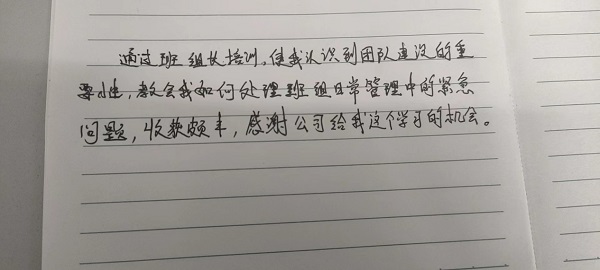 通过班组长培训，使我认识到团队建设的重
要性，教会我如何处理班组日常管理中的紧急
问题，收获颇丰，感谢公司给我这个学习的机会。